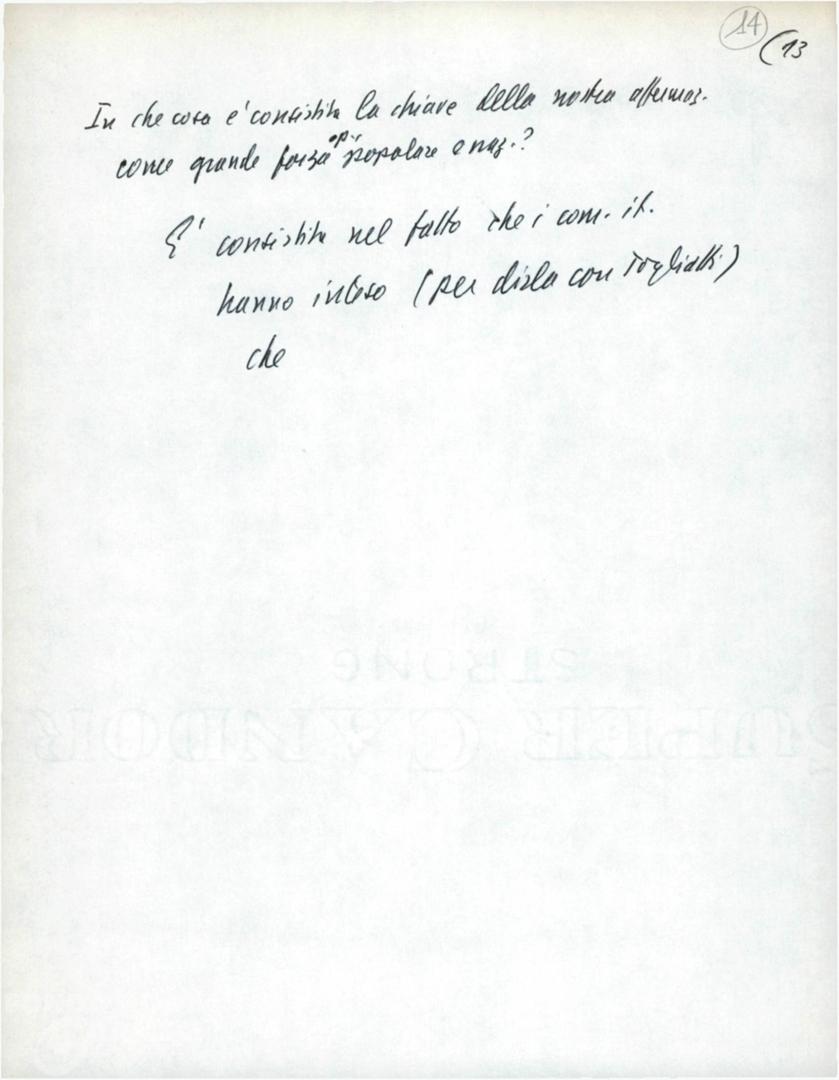 14
(13
In che cosa e' consistita la chiave della nostra affermaz.
op.
come grande forza popolare e naz.?
E' consistita nel fatto che i com. it.
hanno inteso (per dirla con Togliatti)
che